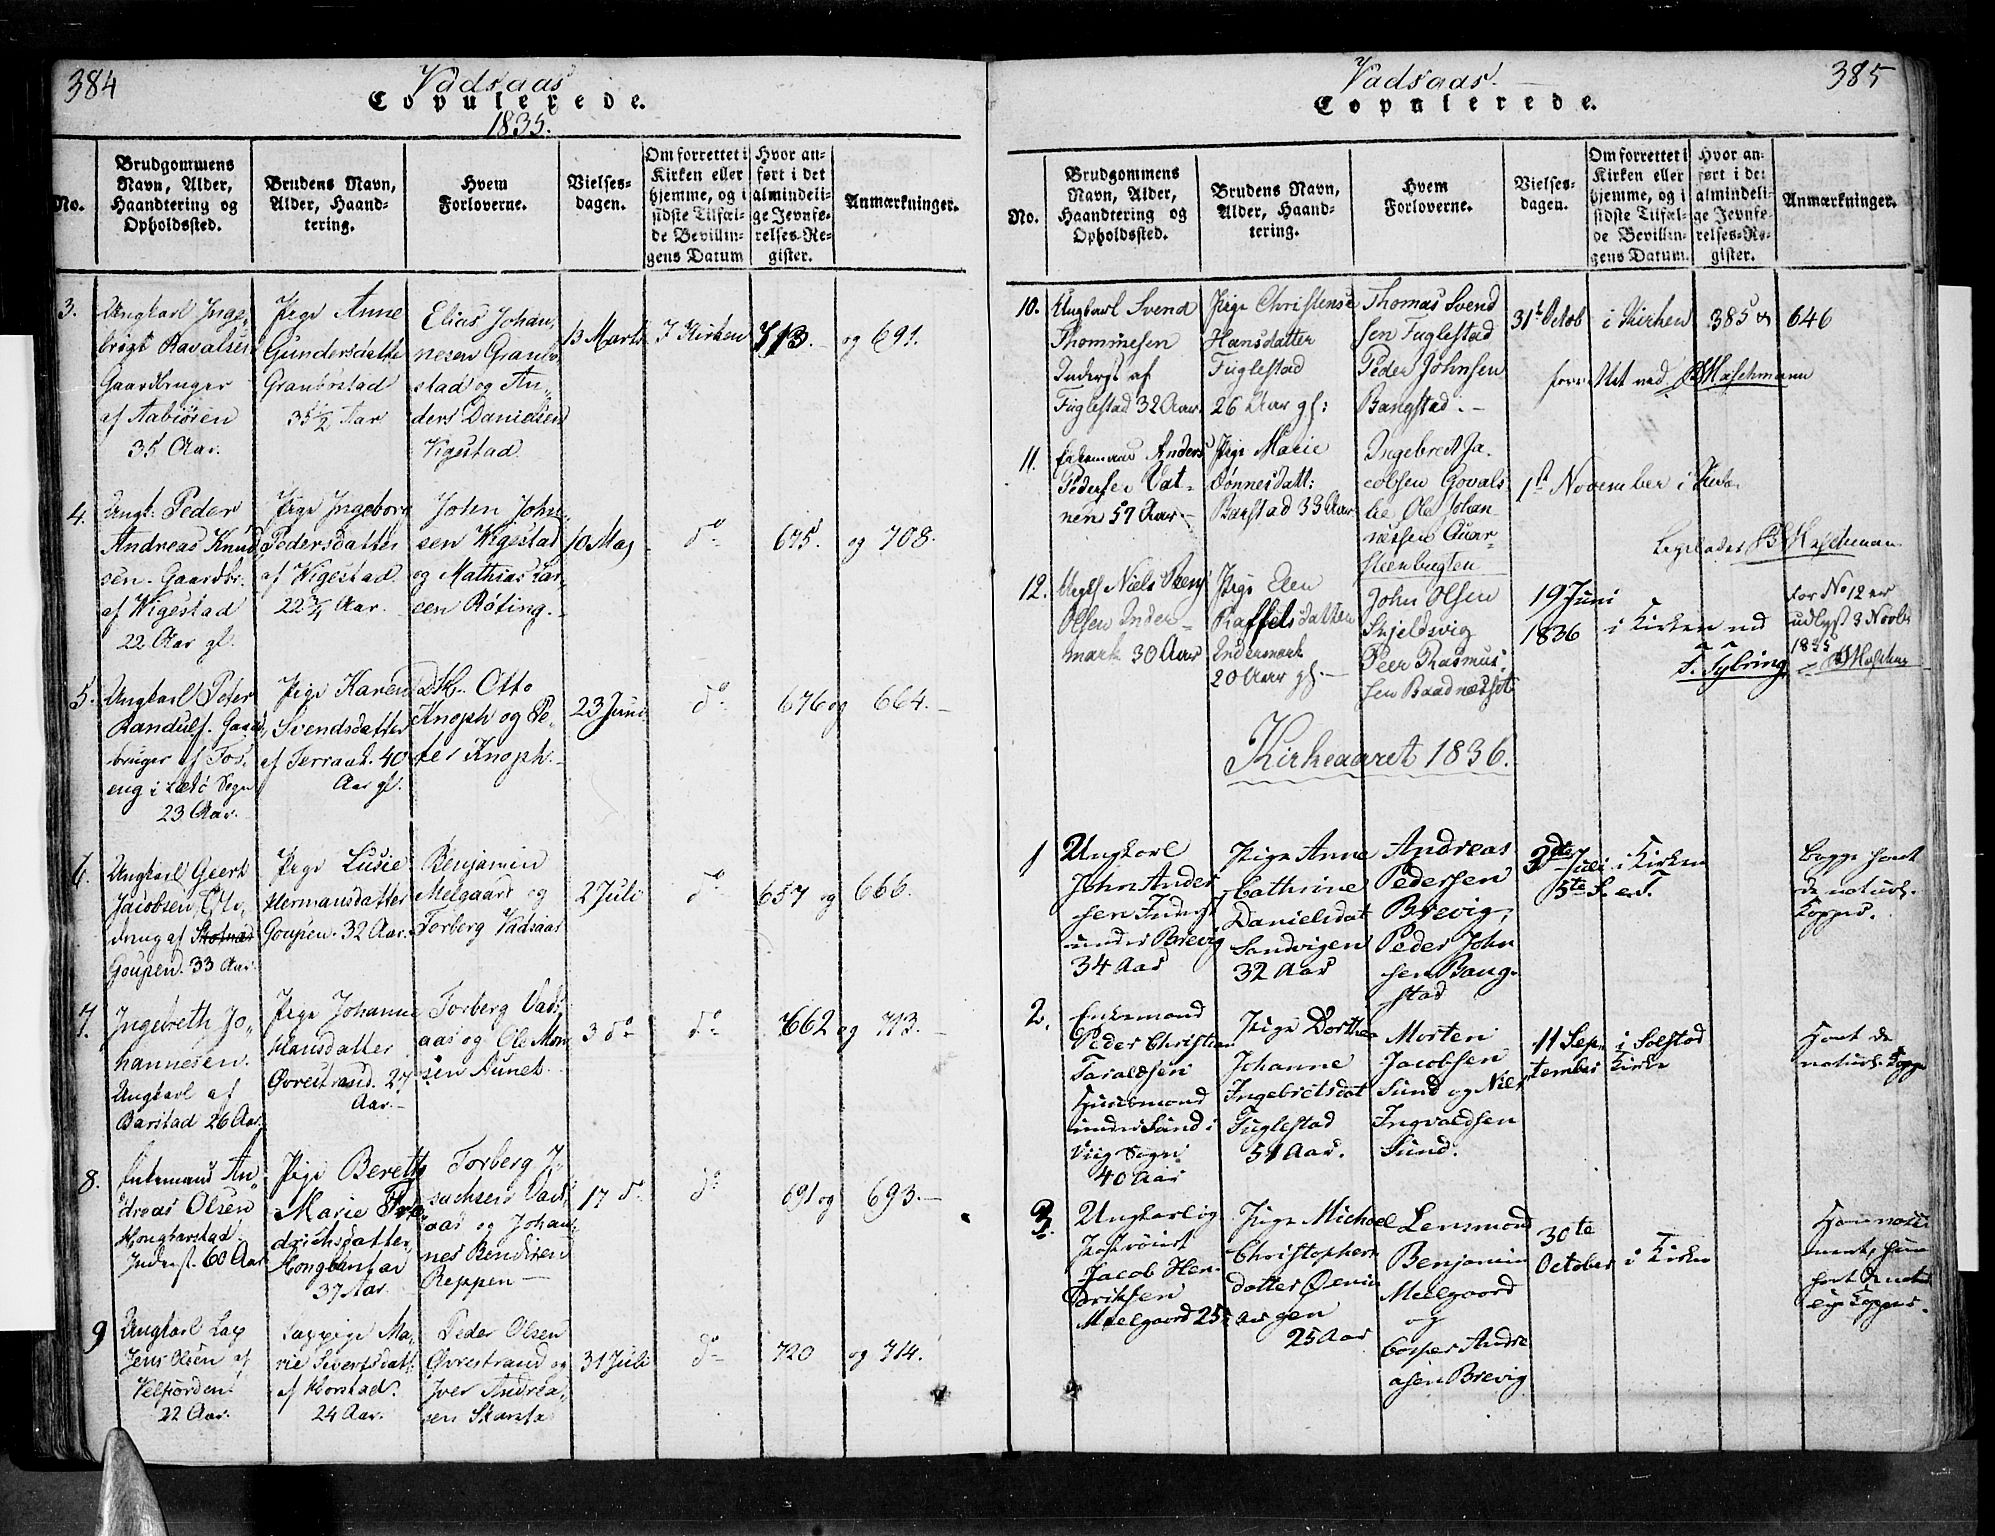 384
Vadsaas
Copulerede.
1835.
No.
Brudgommens
Navn, Alder,
Haandtering og
Opholdssted.
Brudens Navn,
Alder, Haand-
tering.
Hvem
Forloverne.
Vielses-
dagen.
Om forrettet i
Kirken eller
hjemme, og i
sidste Tilfæl-
de Bevillin-
gens Datum
Hvor an-
ført i det
almindeli-
ge Jevnfø-
relses-Re-
gister.
Anmærkninger.
3.
Ungkarl Inge-
brigt
Gaardbruger
af
35 Aar.
Pige Anne
Gundersdatte
35 1/2 Aar
Elias Johan-
nesen
stad og An-
ders Danielsen
Vigestad
13 Marts
I Kirken
713.
og 691.
4.
Ungk. Peder
Andreas Knud
sen. Gaardbr.
af Wigestad
22 Aar gl.
Pige Ingeborg
Pedersdatter
af Wigestad
22 3/4 Aar.
John John-
sen Wigestad
og Mathias Lar-
sen Röting.
10 Maj
do
675.
og 708.
5.
Ungkarl Peter
Randulf. Gaard
bruger af Fos-
eng i Sogn
23 Aar.
Pige Karen
Svendsdatter
af Terraak. 40
Aar gl.
Otto
Knoph og Pe-
ter Knoph.
23 Juni
do
676 og
664.
6.
Ungkarl Geert
Jacobsen
Goupen. 33 Aar.
Pige Lusie
Hermansdatter
Goupen. 32 Aar.
Benjamin
Melgaard og
Torberg Vadsaas
2 Juli
do
657 og
666.
7.
Ingebreth Jo-
hannesen.
Ungkarl af
Barstad 26 Aar.
Pige Johanna
Hansdatter
Øvrestrand. 27
Aar.
Torberg Vads-
aas og Ole Mon
sen Aunet.
3 do
do
662 og
713.
8.
Enkemand An-
dreas Olsen
Hongbarstad.
Inderst. 60 Aar
Pige Bereth
Marie Frø-
drichsdatter
37 Aar.
Torberg I-
sachsen Vads-
aas og Johan-
nes Bendixen
Reppen
17 do
do
691 og
693.
9
Ungkarl Lap
Jens Olsen af
Velfjorden
22 Aar.
Lappige Ma-
rie Sivertsdatt
af Horstad.
24 Aar.
Peder Olsen
Øvrestrand og
Iver Andrea-
sen
31 Juli
do
720
og 714.
Vadsaas.
385
Copulerede.
No.
Brudgommens
Navn, Alder,
Haandtering og
Opholdssted.
Brudens Navn,
Alder, Haand-
tering.
Hvem
Forloverne.
Vielses-
dagen.
Om forrettet i
Kirken eller
hjemme, og i
sidste Tilfæl-
de Bevillin-
gens Datum.
Hvor an-
ført i det
almindeli-
ge Jevnfø-
relses-Re-
gister.
Anmærkninger.
10.
Ungkarl Svend
Thommesen
Inderst af
Fuglestad 32 Aar
Pige Christense
Hansdatter
Fuglestad
26 Aar gl:
Thomas Svend
sen Fuglestad
Peder Johnsen
Bangstad.
31t Octob
i Kirken
385 og
646
forrettet ved Maschmann
11.
Enkemand Anders
Pedersen Vat-
nen 57 Aar
Pige Marie
Tønnesdatt:
Barstad 33 Aar
Ingebret Ja-
cobsen Govals-
lie, Ole Johan-
nessen
1st November i Kirken
Maschman
12.
Ungk Niels
Olsen Inder-
mark 30 Aar
Pige
Raffelsdatter
Indermark
20 Aar gl.
John Olsen
Skjeldsvig
Peer Rasmus-
sen Baadnesset
19 Juni
1836
i Kirken ved
F. Sybring
For No 12 er
udlyst 3 Novb.
1835
Kirkeaaret 1836.
1
Ungkarl
John Ander
sen Inderst
under Brevig
34 Aar
Pige Anne
Cathrine
Danielsdat
Sandvigen
32 Aar
Andreas
Pedersen
Brevig,
Peder John
sen Bang-
stad
3die Juli
5te S. e. T.
i Kirken
begge havt
de naturl.
Kopper.
2.
Enkemand
Peder Christian
Taraldsen
Huusmand
under Sund i
Viig Sogn
40 Aar
Pige Dorthea
Johanne
Ingebretsdat
Fuglestad
51 Aar.
Morten
Jacobsen
Sund og Niels
Ingvaldsen
Sund.
11 Sep-
tember
i Solstad
Kirke
Havt de
naturl. Kopper
3.
Ungkarl og
Jacob Hen-
driksen
Meelgaard 25
Pige Michael
Christophers
datter
Aar
25 Aar
Lensmand
Benjamin
Meelgaard
og
Casper Andre
asen Brevig
30te
October
i Kirken